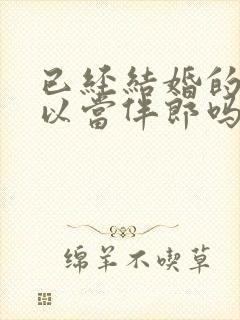 已经結婚的
以當伴郎吗
绵羊不喫草